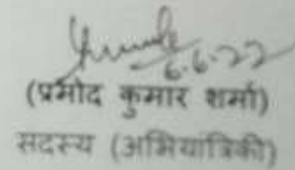 6.6.22
(प्रमोद कुमार शर्मा)
सदस्य (अभियांत्रिकी)